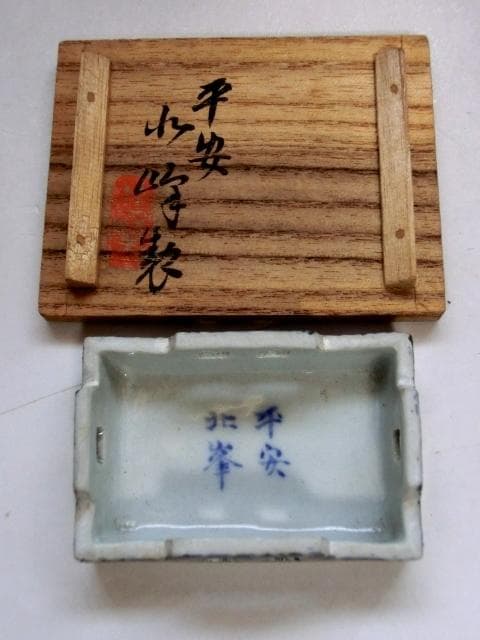 平安
北峰製
平安
北峯